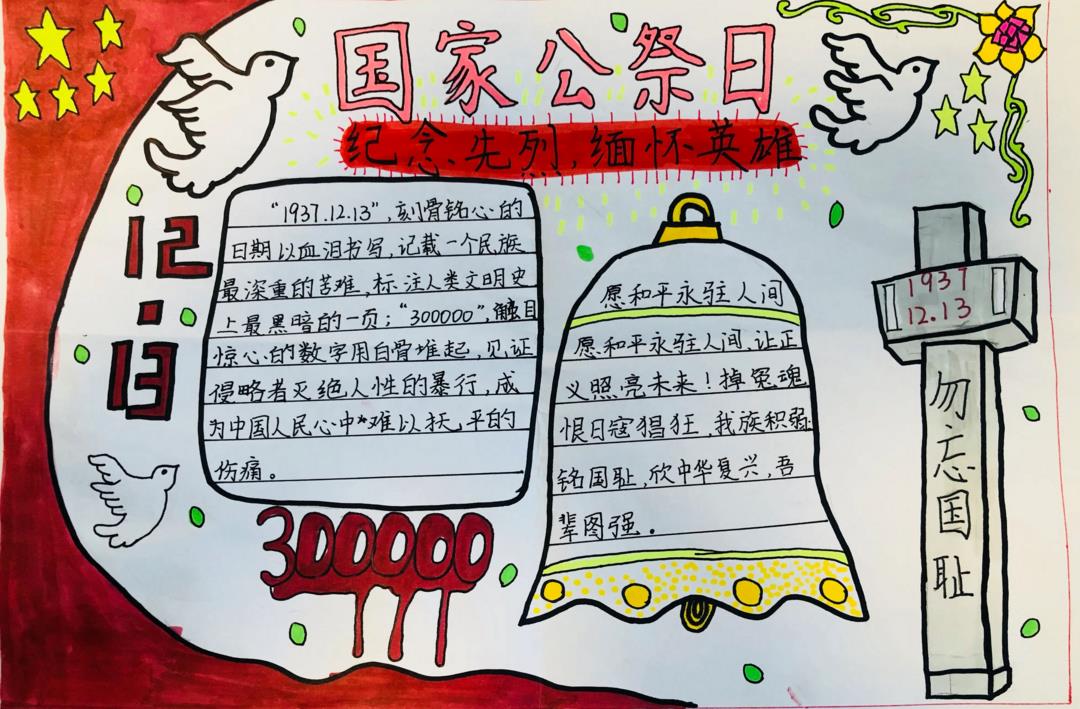 国家公祭日
纪念先烈,缅怀英雄
12
·
13
"1937.12.13",刻骨铭心的
日期以血泪书写,记载一个民族
最深重的苦难,标注人类文明史
上最黑暗的一页;"300000",触目
惊心的数字用白骨堆起,见证
侵略者灭绝人性的暴行,成
为中国人民心中难以抚平的
伤痛。
300000
愿和平永驻人间
愿和平永驻人间,让正
义照亮未来!掉冤魂
恨日寇猖狂,我族积弱
铭国耻,欣中华复兴,吾
辈图强。
1937
12.13
勿忘国耻